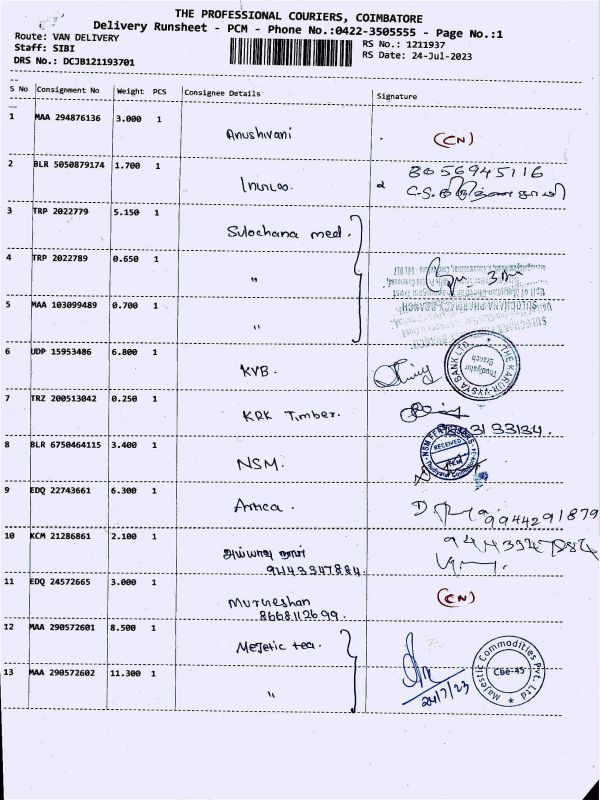 THE PROFESSIONAL COURIERS, COIMBATORE
Delivery Runsheet - PCM - Phone No.:0422-3505555 - Page No.:1
Route: VAN DELIVERY
Staff: SIBI
DRS No.: DCJB121193701
RS No.: 1211937
RS Date: 24-Jul-2023
S No Consignment No Weight PCS Consignee Details Signature
1 MAA 294876136 3.000 1 Anushivani (CN)
2 BLR 5050879174 1.700 1 8056945116
3 TRP 2022779 5.150 1 Sulochana med.
4 TRP 2022789 0.650 1 "
5 MAA 103099489 0.700 1 "
6 UDP 15953486 6.800 1 KVB.
THE KARUR VYSYA BANK LTD
Thudiyalur
Branch
7 TRZ 200513042 0.250 1 KRK Timber.
8 BLR 6750464115 3.400 1 NSM.
RECEIVED
9 EDQ 22743661 6.300 1 9944291879
10 KCM 21286861 2.100 1
9443347884
11 EDQ 24572665 3.000 1 Murugeshan (CN)
8668112699.
12 MAA 290572601 8.500 1 Mejetic tea.
13 MAA 290572602 11.300 1 "
24/7/23
Majestic Commodities Pvt. Ltd
Cbe-45